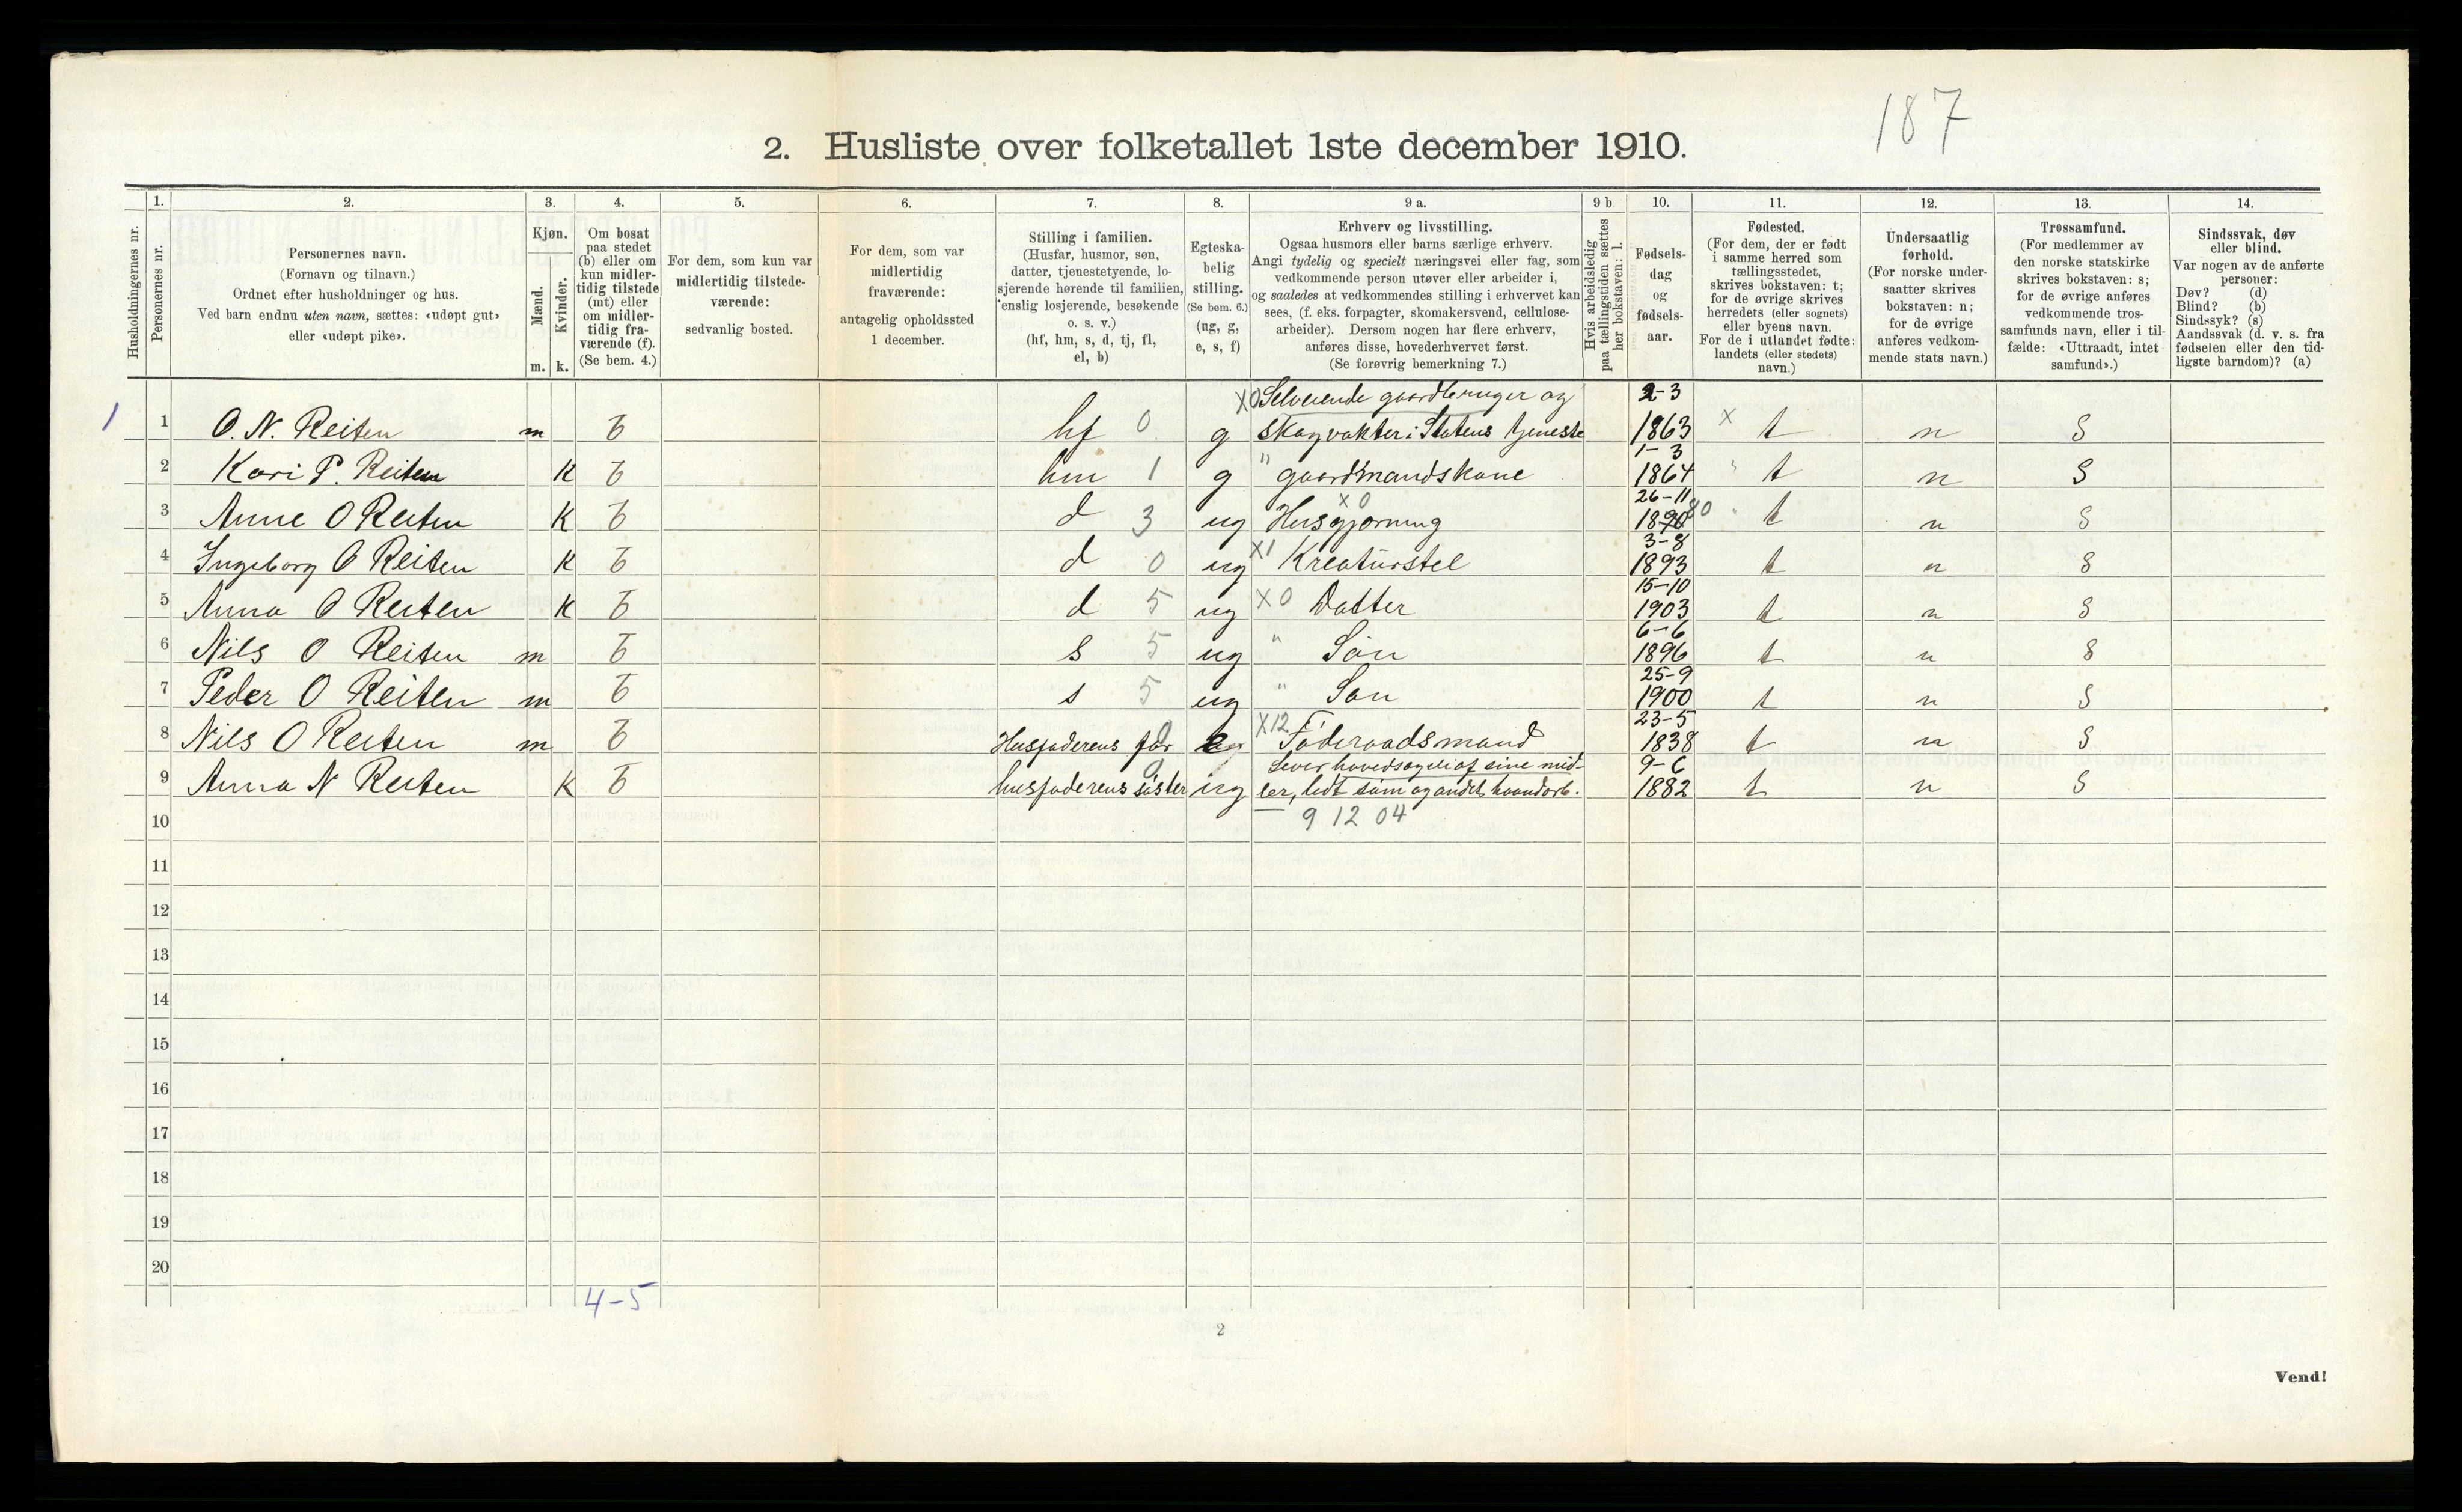 187
2. Husliste over folketallet 1ste december 1910.
Husholdningernes nr.
1. Personernes nr.
2. Personernes navn.
(Fornavn og tilnavn.)
Ordnet efter husholdninger og hus.
Ved barn endnu uten navn, sættes: «udøpt gut»
eller «udøpt pike».
3. Kjøn.
Mænd. m.
Kvinder. k.
4. Om bosat
paa stedet
(b) eller om
kun midler-
tidig tilstede
(mt) eller
om midler-
tidig fra-
værende (f).
(Se bem. 4.)
5. For dem, som kun var
midlertidig tilstede-
værende:
sedvanlig bosted.
6. For dem, som var
midlertidig
fraværende:
antagelig opholdssted
1 december.
7. Stilling i familien.
(Husfar, husmor, søn,
datter, tjenestetyende, lo-
sjerende hørende til familien,
enslig losjerende, besøkende
o. s. v.)
(hf, hm, s, d, tj, fl,
el, b)
8. Egteska-
belig
stilling.
(Se bem. 6.)
(ug, g,
e, s, f)
9 a. Erhverv og livsstilling.
Ogsaa husmors eller barns særlige erhverv.
Angi tydelig og specielt næringsvei eller fag, som
vedkommende person utøver eller arbeider i,
og saaledes at vedkommendes stilling i erhvervet kan
sees, (f. eks. forpagter, skomakersvend, cellulose-
arbeider). Dersom nogen har flere erhverv,
anføres disse, hovederhvervet først.
(Se forøvrig bemerkning 7.)
9 b Hvis arbeidsledig
paa tællingstiden sættes
her bokstaven: l.
10. Fødsels-
dag
og
fødsels-
aar.
11. Fødested.
(For dem, der er født
i samme herred som
tællingsstedet,
skrives bokstaven: t;
for de øvrige skrives
herredets (eller sognets)
eller byens navn.
For de i utlandet fødte:
landets (eller stedets)
navn.)
12. Undersaatlig
forhold.
(For norske under-
saatter skrives
bokstaven: n;
for de øvrige
anføres vedkom-
mende stats navn.)
13. Trossamfund.
(For medlemmer av
den norske statskirke
skrives bokstaven: s;
for de øvrige anføres
vedkommende tros-
samfunds navn, eller i til-
fælde: «Uttraadt, intet
samfund».)
14. Sindssvak, døv
eller blind.
Var nogen av de anførte
personer:
Døv? (d)
Blind? (b)
Sindssyk? (s)
Aandssvak (d. v. s. fra
fødselen eller den tid-
ligste barndom)? (a)
X0 Selveiende gaardbruger og 2-3
1 1 O. N. Reiten m b hf 0 g skogvokter i Statens tjeneste 1863 x t n S
1-3
2 Kari P. Reiten K b hm 1 g " gaardmandskone 1864 " t n S
x0 26-11
3 Anne O Reiten K b d 3 ug Husgjørning 1890 80 " t n S
3-8
4 Ingeborg O Reiten K b d 0 ug X1 Kreaturstel 1893 t n S
15-10
5 Anna O Reiten K b d 5 ug X0 Datter 1903 t n S
6-6
6 Nils O Reiten m b s 5 ug " Søn 1896 t n S
25-9
7 Peder O Reiten m b s 5 ug " Søn 1900 t n S
X12 23-5
8 Nils O Reiten m b Husfaderens far 0 Føderaadsmand 1838 t n S
Lever hovedsagelig af sine mid- 9-6
9 Anna N Reiten K b husfaderens søster 0 ug ler, lidt søm og andet haandarb. 1882 t n S
10 9 12 04
11
12
13
14
15
16
17
18
19
20
4-5
2
Vend!